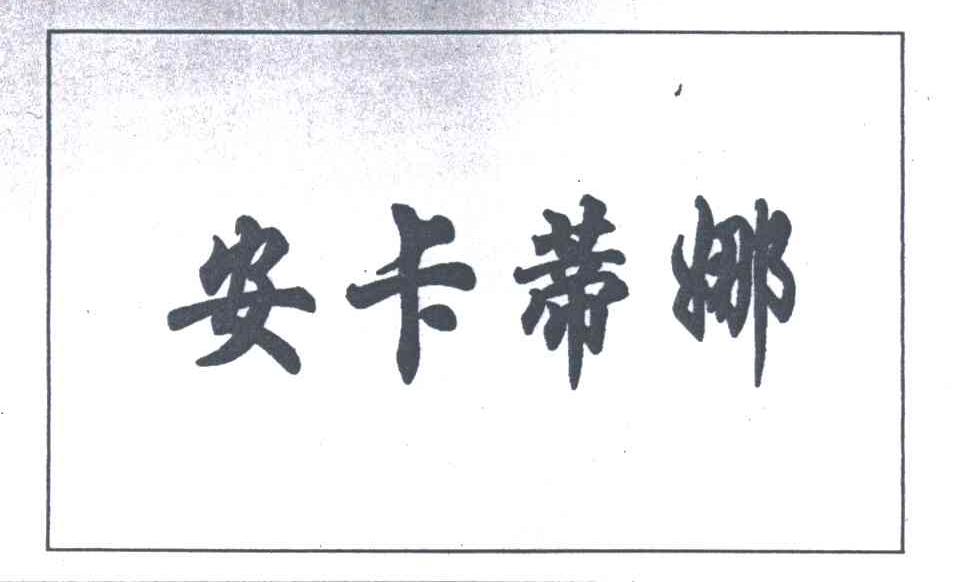 安卡蒂娜